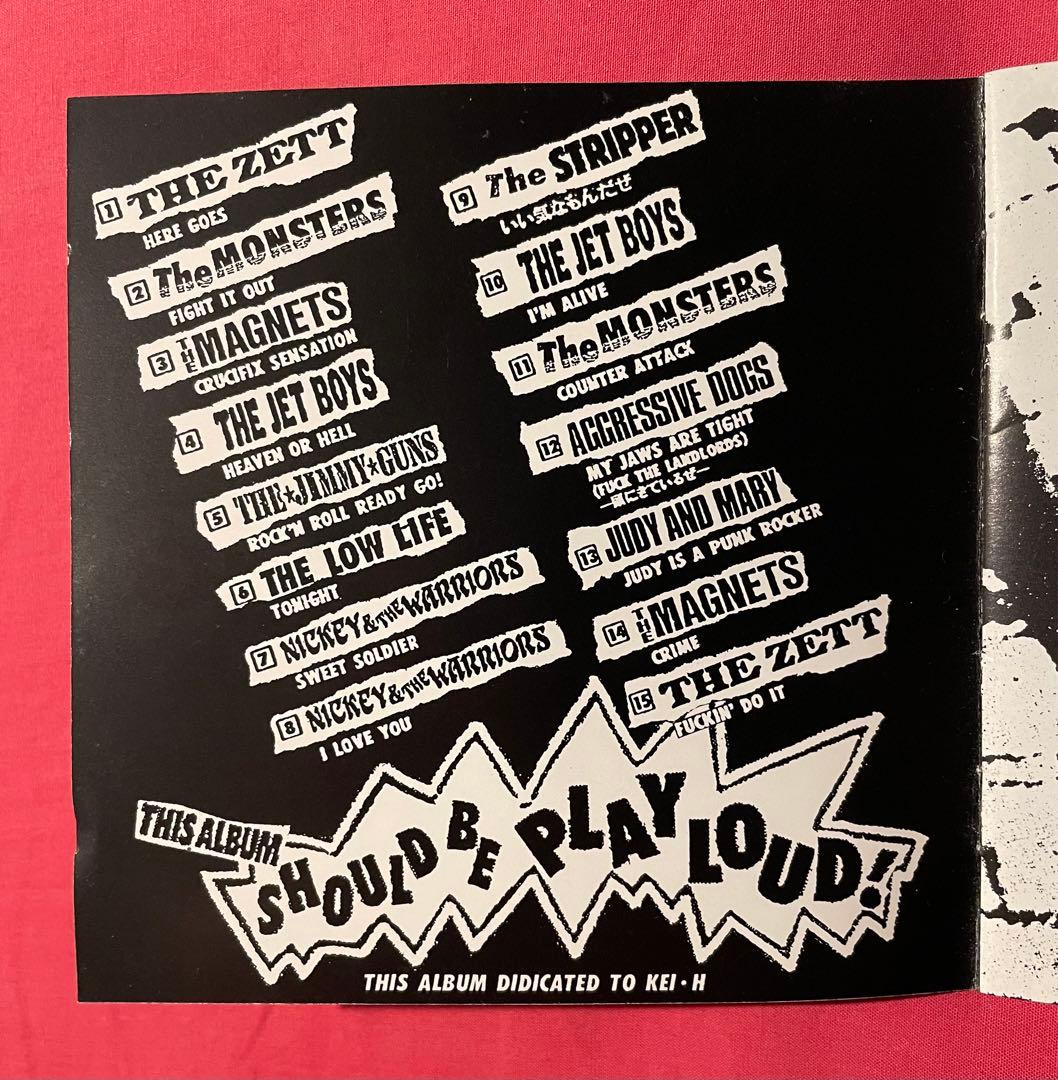 1 THE ZETT
HERE GOES
2 The MONSTERS
FIGHT IT OUT
3 THE MAGNETS
CRUCIFIX SENSATION
4 THE JET BOYS
HEAVEN OR HELL
5 THE★JIMMY★GUNS
ROCK'N ROLL READY GO!
6 THE LOW LIFE
TONIGHT
7 NICKEY & THE WARRIORS
SWEET SOLDIER
8 NICKEY & THE WARRIORS
I LOVE YOU
9 The STRIPPER
いい気なもんだぜ
10 THE JET BOYS
I'M ALIVE
11 The MONSTERS
COUNTER ATTACK
12 AGGRESSIVE DOGS
MY JAWS ARE TIGHT
(FUCK THE LANDLORDS)
ー頭にきているぜー
13 JUDY AND MARY
JUDY IS A PUNK ROCKER
14 THE MAGNETS
CRIME
15 THE ZETT
FUCKIN' DO IT
THIS ALBUM
SHOULD BE PLAY LOUD!
THIS ALBUM DIDICATED TO KEI・H